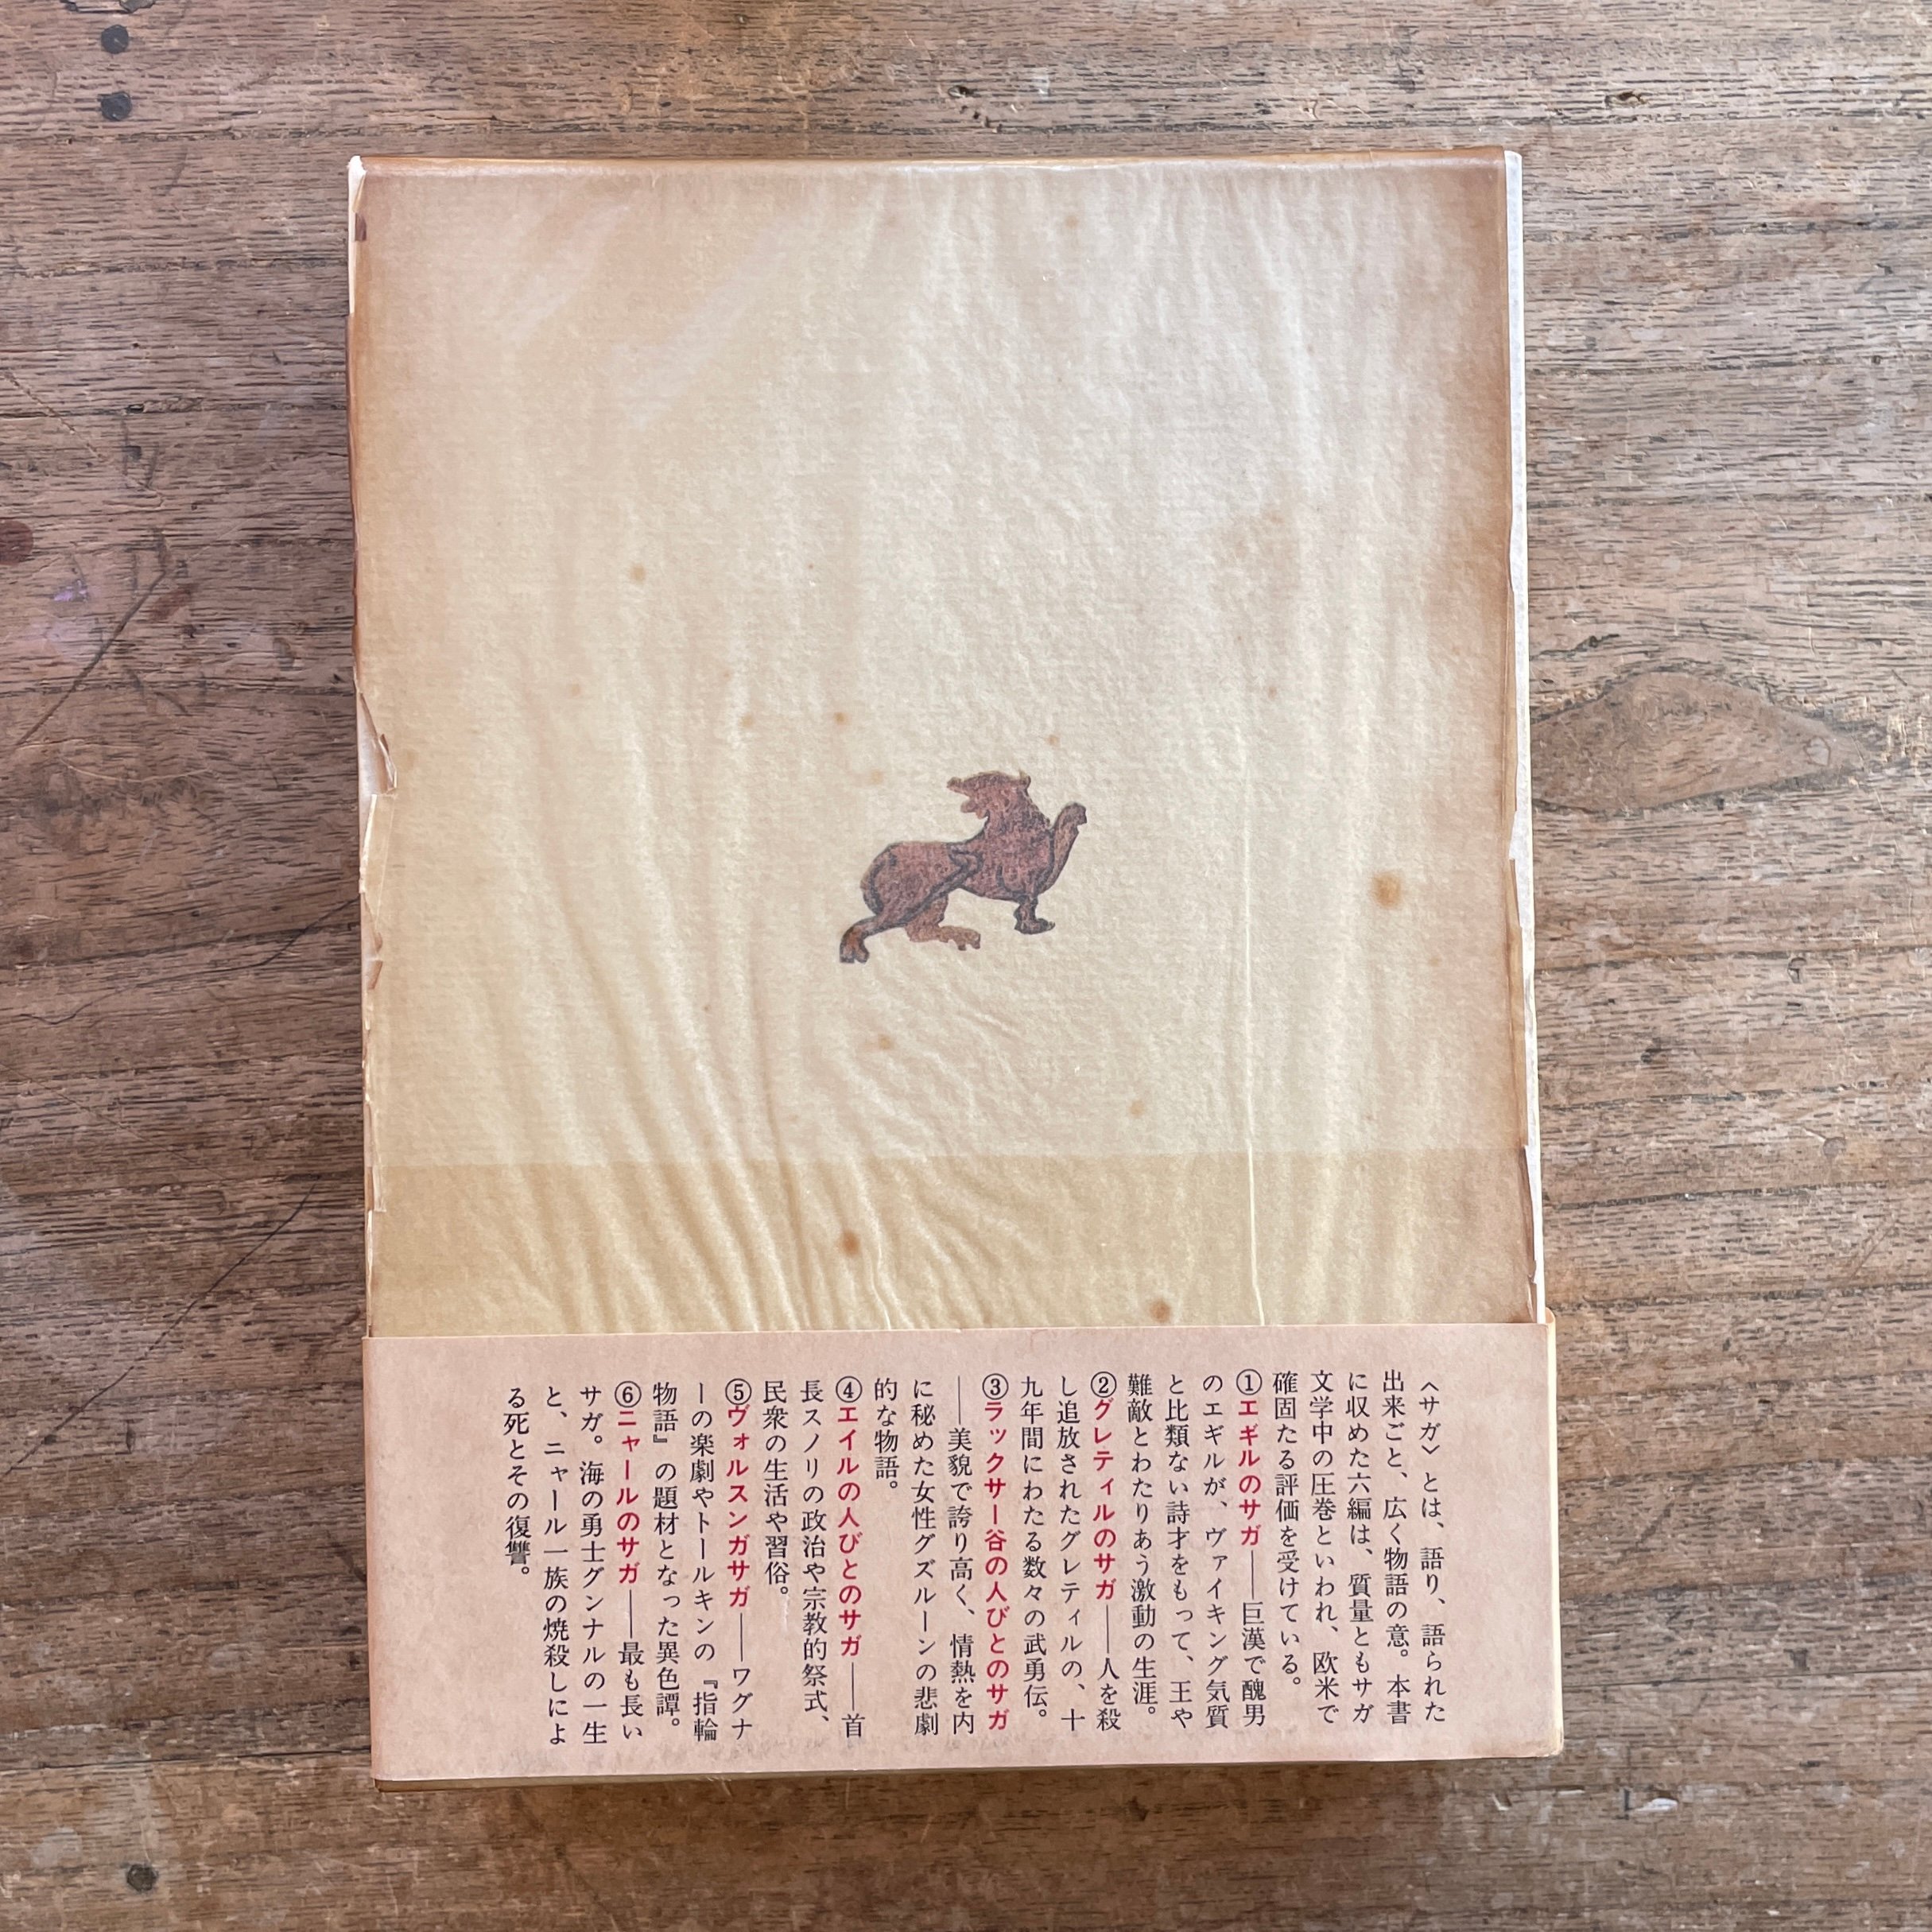 〈サガ〉とは、語り、語られた
出来ごと、広く物語の意。本書
に収めた六編は、質量ともサガ
文学中の圧巻といわれ、欧米で
確固たる評価を受けている。
①エギルのサガ——巨漢で醜男
のエギルが、ヴァイキング気質
と比類ない詩才をもって、王や
難敵とわたりあう激動の生涯。
②グレティルのサガ——人を殺
し追放されたグレティルの、十
九年間にわたる数々の武勇伝。
③ラックサー谷の人びとのサガ
——美貌で誇り高く、情熱を内
に秘めた女性グズルーンの悲劇
的な物語。
④エイルの人びとのサガ——首
長スノリの政治や宗教的祭式、
民衆の生活や習俗。
⑤ヴォルスンガサガ——ワグナ
ーの楽劇やトールキンの『指輪
物語』の題材となった異色譚。
⑥ニャールのサガ——最も長い
サガ。海の勇士グンナルの一生
と、ニャール一族の焼殺しによ
る死とその復讐。